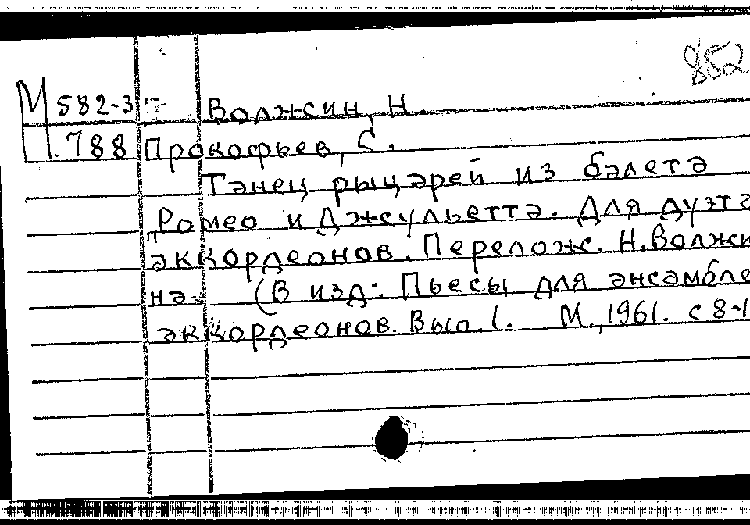 852
М 582-3 Волжсин, Н.
П.788 Прокофьев, С.
Танец рыцарей из балета
Ромео и Джульетта. Для дуэта
аккордеонов. Перелож. Н. Волжи
на. (В изд: Пьесы для ансамбле
аккордеонов. Вып. 1. М., 1961. с 8-1